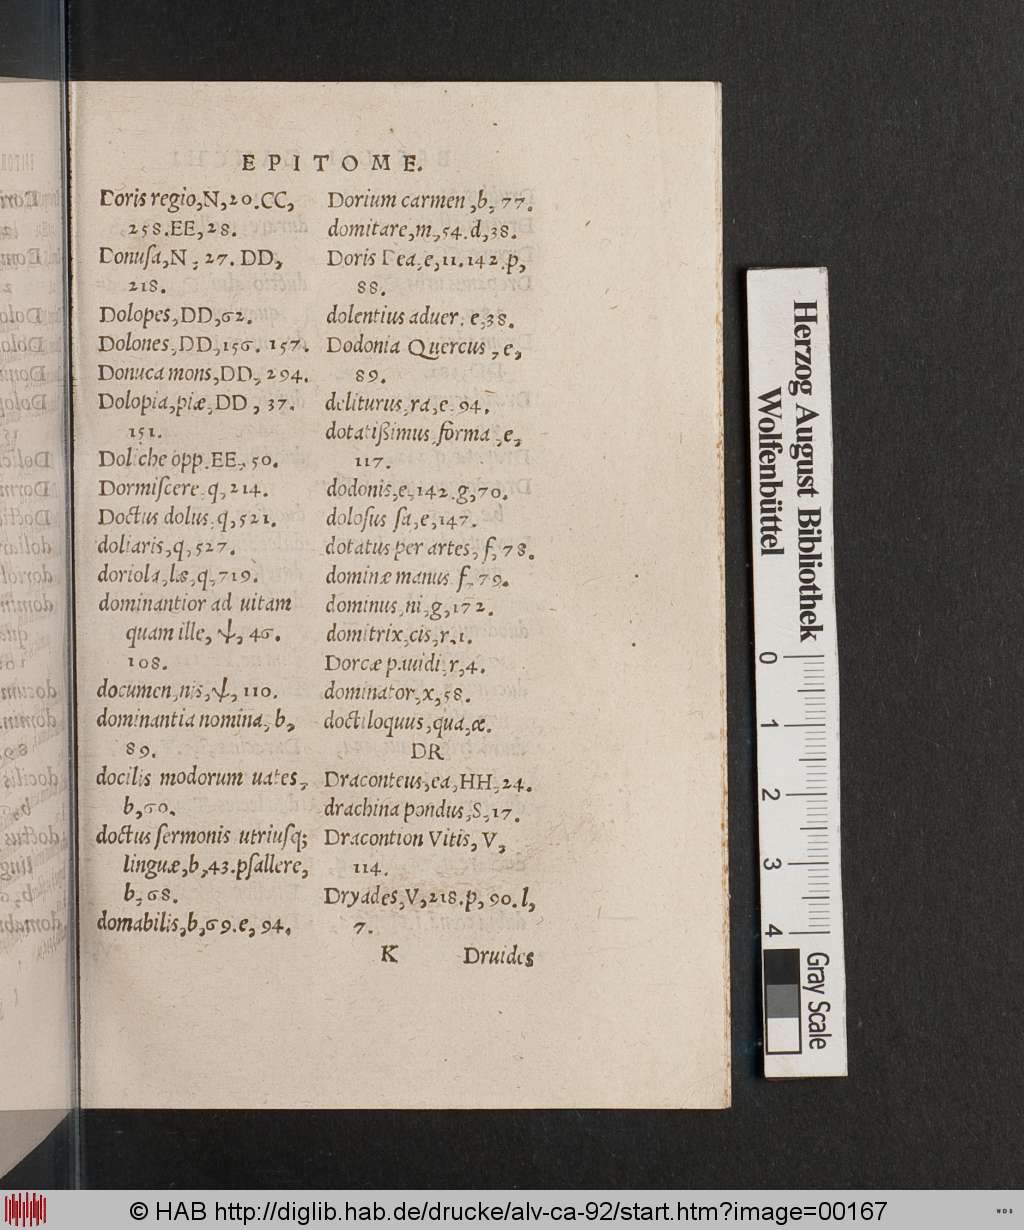 EPITOME.
Doris regio,N,20.CC,
258.EE,28.
Donuſa,N,27.DD,
218.
Dolopes,DD,62.
Dolones,DD,156.157.
Donuca mons,DD,294.
Dolopia,piæ,DD,37.
151.
Doliche opp.EE,50.
Dormiſcere.q,214.
Doctus dolus.q,521.
doliaris,q,527.
doriola,læ,q,719.
dominantior ad uitam
quam ille,ψ,46.
108.
documen,nis,ψ,110.
dominantia nomina,b,
89.
docilis modorum uates,
b,60.
doctus ſermonis utriuſq;
linguæ,b,43.pſallere,
b,68.
domabilis,b,69.e,94.
Dorium carmen,b,77.
domitare,m,54.d,38.
Doris Dea,e,11.142.p,
88.
dolentius aduer.e,38.
Dodonia Quercus,e,
89.
deliturus,ra,e.94.
dotatißimus,forma,e,
117.
dodonis,e,142.g,70.
doloſus ſa,e,147.
dotatus per artes,f,78.
dominæ manus.f,79.
dominus,ni,g,172.
domitrix,cis,r,1.
Dorcæ pauidi,r,4.
dominator,x,58.
doctiloquus,qua,æ.
DR
Draconteus,ea,HH,24.
drachina pondus,S,17.
Dracontion Vitis,V,
114.
Dryades,V,218.p,90.l,
7.
K Druides
Herzog August Bibliothek
Wolfenbüttel
0 1 2 3 4
Gray Scale
© HAB http://diglib.hab.de/drucke/alv-ca-92/start.htm?image=00167